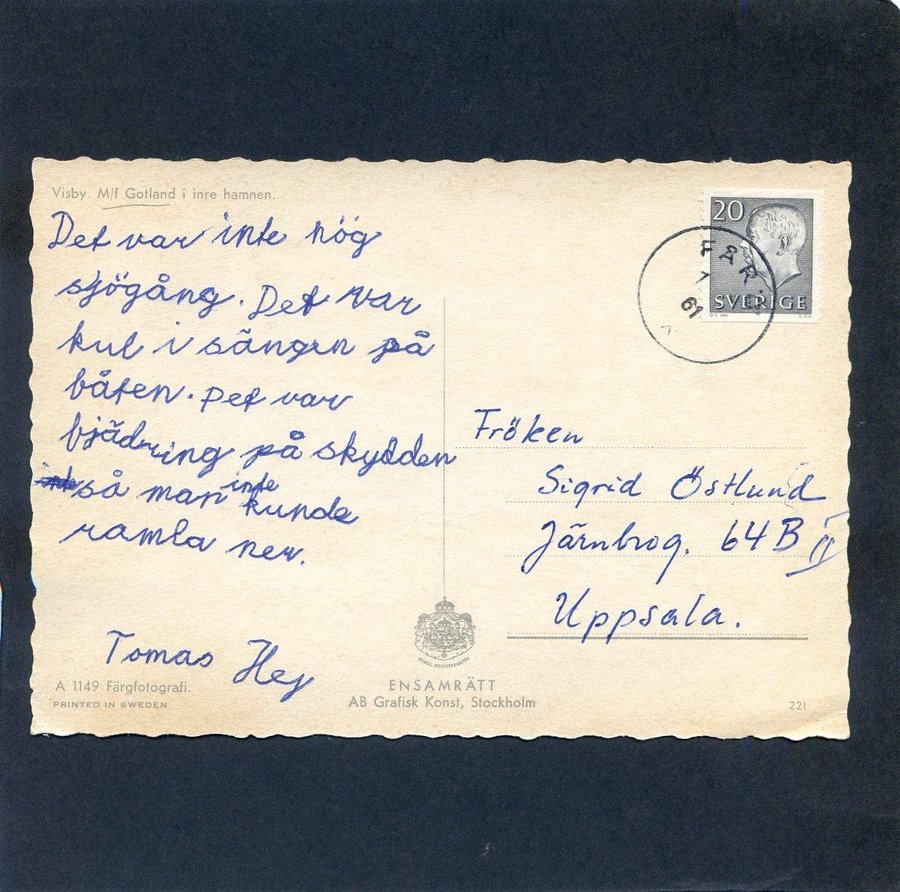 Visby. M/f Gotland i inre hamnen.
Det var inte hög
sjögång. Det var
kul i sängen på
båten. Det var
bjädring på skydden
så man inte kunde
ramla ner.
Tomas Hej
A 1149 Färgfotografi.
PRINTED IN SWEDEN
ENSAMRÄTT
AB Grafisk Konst, Stockholm
20
SVERIGE
FÅR
61
Fröken
Sigrid Östlund
Järnbrog. 64 B II
Uppsala.
221